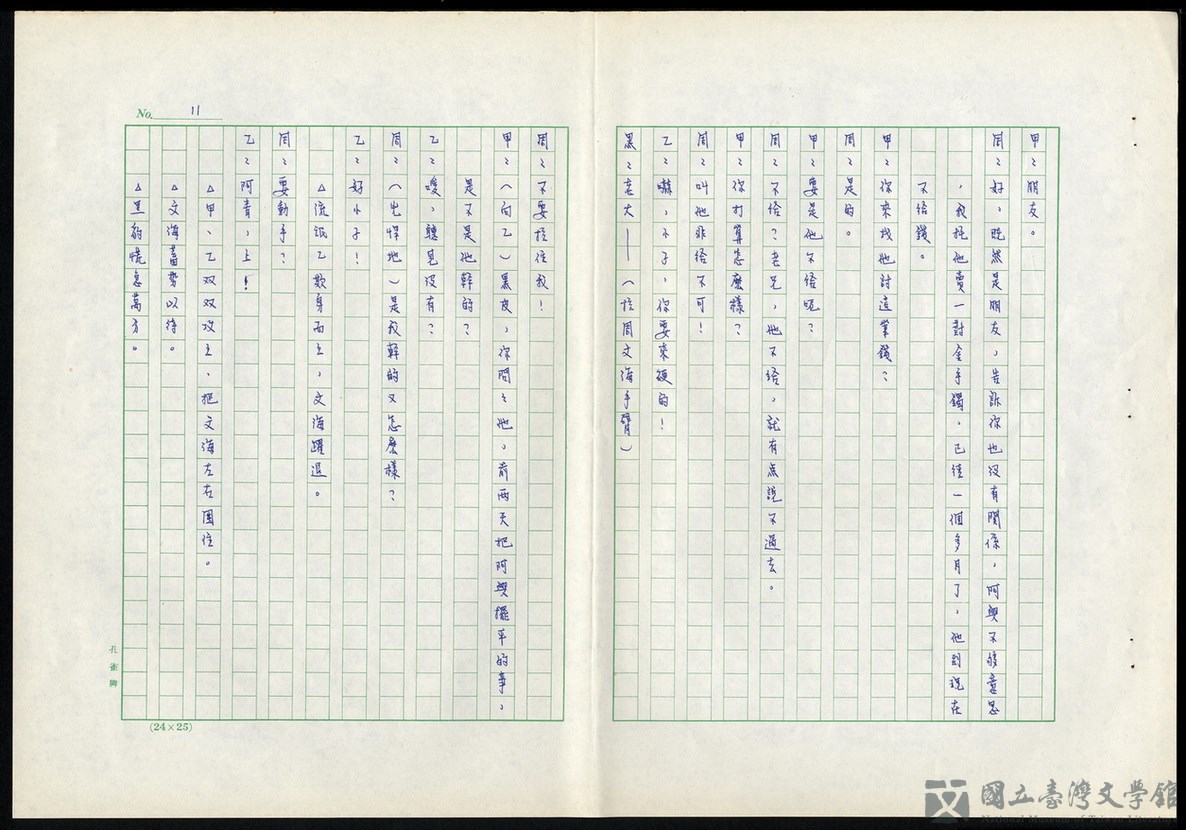 甲：朋友。
周：好，既然是朋友，告訴你也沒有關係，阿興不夠意思
，我托他賣一對金手鐲，已經一個多月了，他到現在
不給錢。
甲：你來找他討這筆錢？
周：是的。
甲：要是他不給呢？
周：不給？老兄，他不給，就有点說不過去。
甲：你打算怎麼樣？
周：叫他非給不可！
乙：嚇，小子，你要來硬的！
黑：老大——（拉周文海手臂）
周：不要拉住我！
甲：（向乙）黑皮，你問々他，前兩天把阿興擺平的事，
是不是他幹的？
乙：嗳，聽見沒有？
周：（先悍地）是我幹的又怎麼樣？
乙：好小子！
△流氓乙欺身而上，文海躍退。
周：要動手？
乙：阿青，上！
△甲、乙双双攻上，把文海左右圍住。
△文海蓄勢以待。
△黑豹慌急萬分。
No. 11
孔雀牌
(24×25)
國立臺灣文學館
National Museum of Taiwan Literature